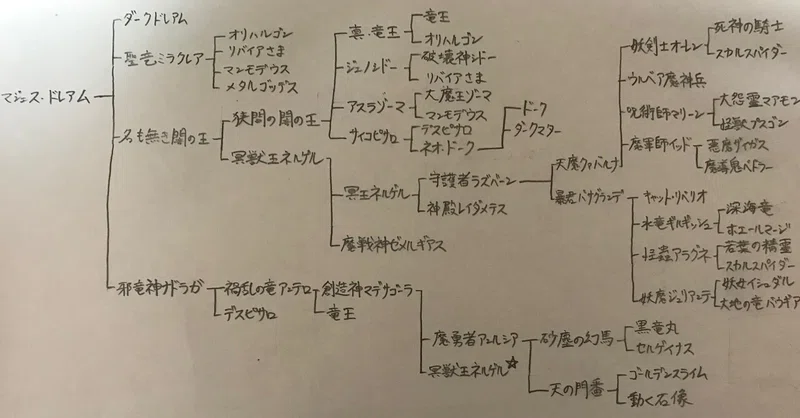 マジェス・ドレアム
ダークドレアム
聖竜ミラクレア
オリハルゴン
リバイアさま
マンモデウス
メタルゴッデス
名も無き闇の王
狭間の闇の王
真・竜王
竜王
オリハルゴン
ジェノシドー
破壊神シドー
リバイアさま
アスラゾーマ
大魔王ゾーマ
マンモデウス
サイコピサロ
デスピサロ
ネオ・ドーク
ドーク
ダークマター
冥獣王ネルゲル
冥王ネルゲル
守護者ラズバーン
天魔クァバルナ
妖剣士オーレン
死神の騎士
スカルスパイダー
ウルベア魔神兵
呪術師マリーン
大怨霊マアモン
怪獣プスゴン
魔軍師イッド
悪魔ダイガス
魔導鬼ベドラー
暴君バサグランデ
キャット・リベリオ
水竜ギルギッシュ
深海竜
ホエールマージ
怪蟲アラグネ
若葉の精霊
スカルスパイダー
妖魔ジュリアンテ
妖女イシュダル
大地の竜バウギア
神殿レイダメテス
魔戦神ゼメルギアス
邪竜神ナドラガ
禍乱の竜アンテロ
創造神マデサゴーラ
魔勇者アンルシア
砂塵の幻馬
黒竜丸
セルゲイナス
天の門番
ゴールデンスライム
動く石像
冥獣王ネルゲル☆
竜王
デスピサロ